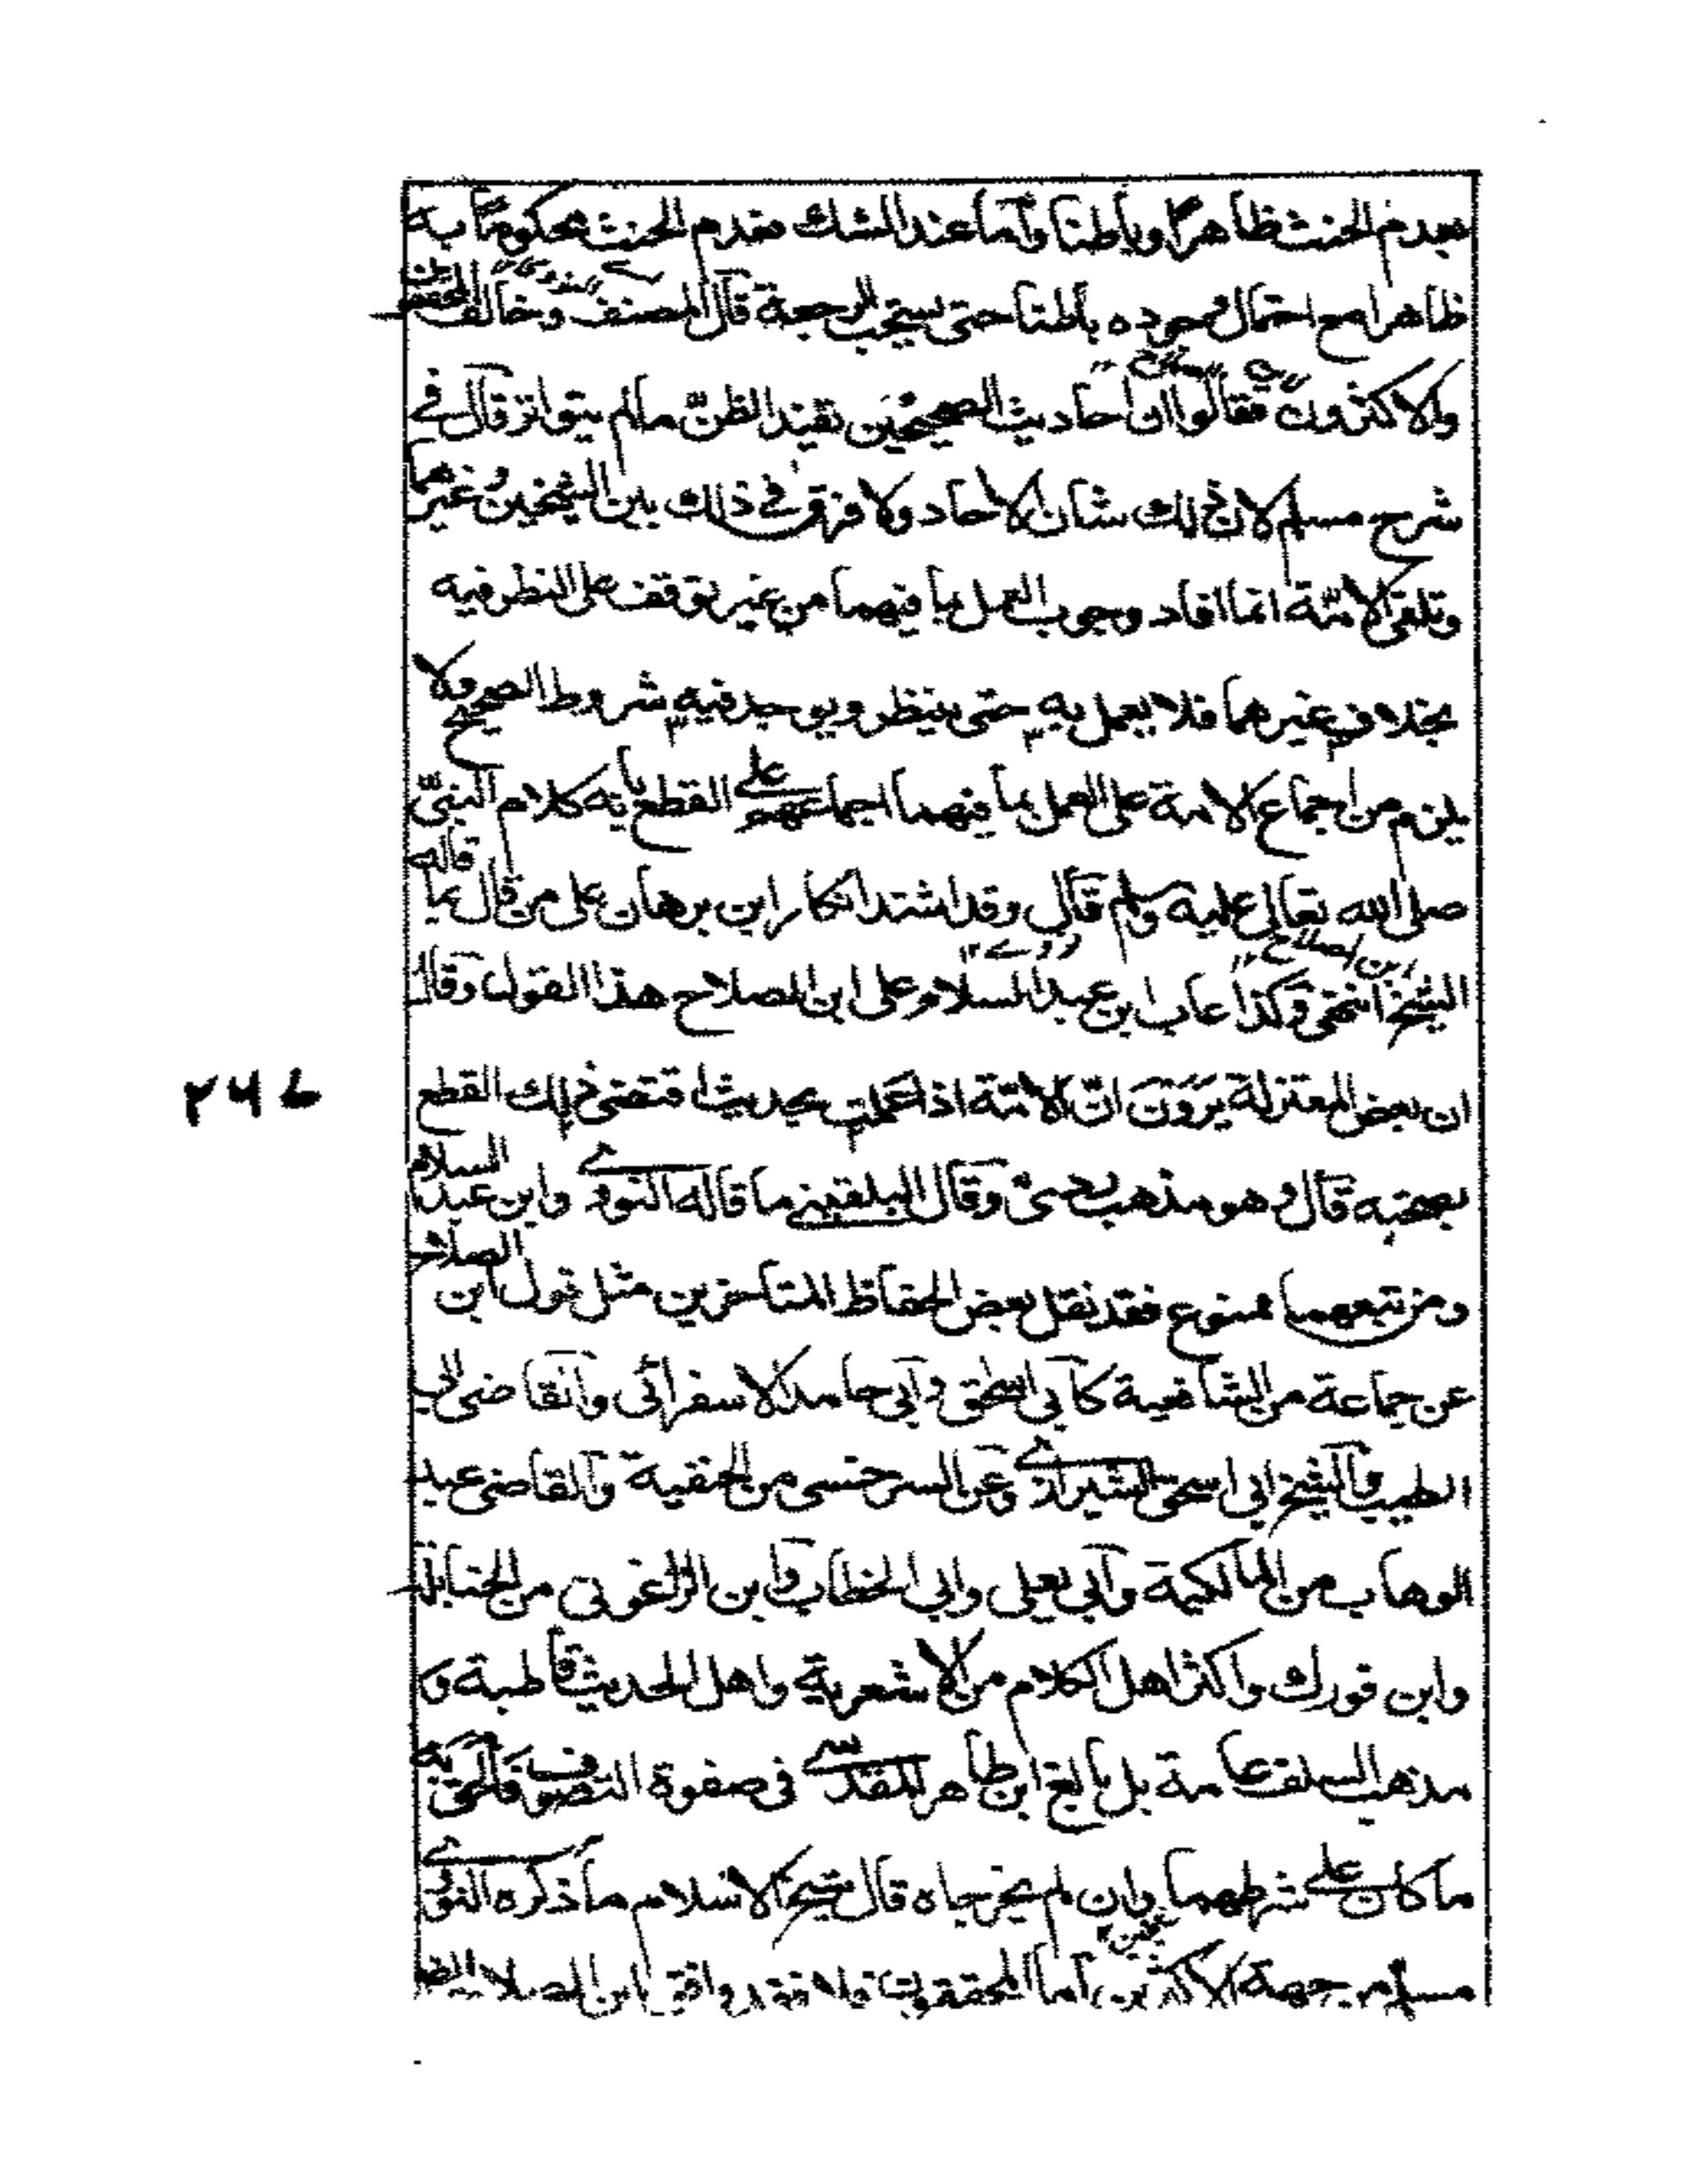 بعدم الحنث ظاهرا وباطنا واما عند الشك فعدم الحنث محكوما به
ظاهرا مع احتمال وجوده باطنا حتى يستحب الرجعة قال المصنف وخالف المحققون
والاكثرون فقالوا ان احاديث الصحيحين تفيد الظنّ مالم يتواتر قال في
شرح مسلم لان ذلك شان الاحاد ولا فرق في ذلك بين الشيخين وغيرهما
وتلقى الامّة انما افاد وجوب العمل بما فيهما من غير توقف على النظر فيه
بخلاف غيرهما فلا يعمل به حتى ينظر ويوجد فيه شروط الصحيح ولا
يلزم من اجماع الامة على العمل بما فيهما اجماعهم على القطع بانه كلام النبيّ
صلى الله تعالى عليه وسلم قال وقد اشتد انكار ابن برهان على من قال بما قاله
الشيخ انتهى وكذا عاب ابن عبد السلام على ابن الصلاح هذا القول وقال
ابن الصلاح
ان بعض المعتزلة يرون انّ الامّة اذا عملت بحديث اقتضى ذلك القطع
٢٤٦
بصحته قال وهو مذهب ردئ وقال البلقيني ما قاله النووي وابن عبد السلام
ومن تبعهما ممنوع فقد نقل بعض الحفاظ المتاخرين مثل قول ابن الصلاح
عن جماعة من الشافعية كابى اسحق وابى حامد الاسفرائى والقاضى ابى
الطيب والشيخ ابى اسحق الشيرازي وعن السرخسى من الحنفية والقاضى عبد
الوهاب من المالكية وابى يعلى وابى الخطاب وابن الزاغونى من الحنابلة
وابن فورك واكثر اهل الكلام من الاشعرية واهل الحديث قاطبة و
مذهب السلف عامة بل بالغ ابن طاهر المقدسي فى صفوة التصوف فالحق به
ما كان على شرطهما وان لم يخرجاه قال شيخ الاسلام ما ذكره النووي
مسلم من جهة الاكثرين اما المحققون فلا فقد وافق ابن الصلاح ايضا